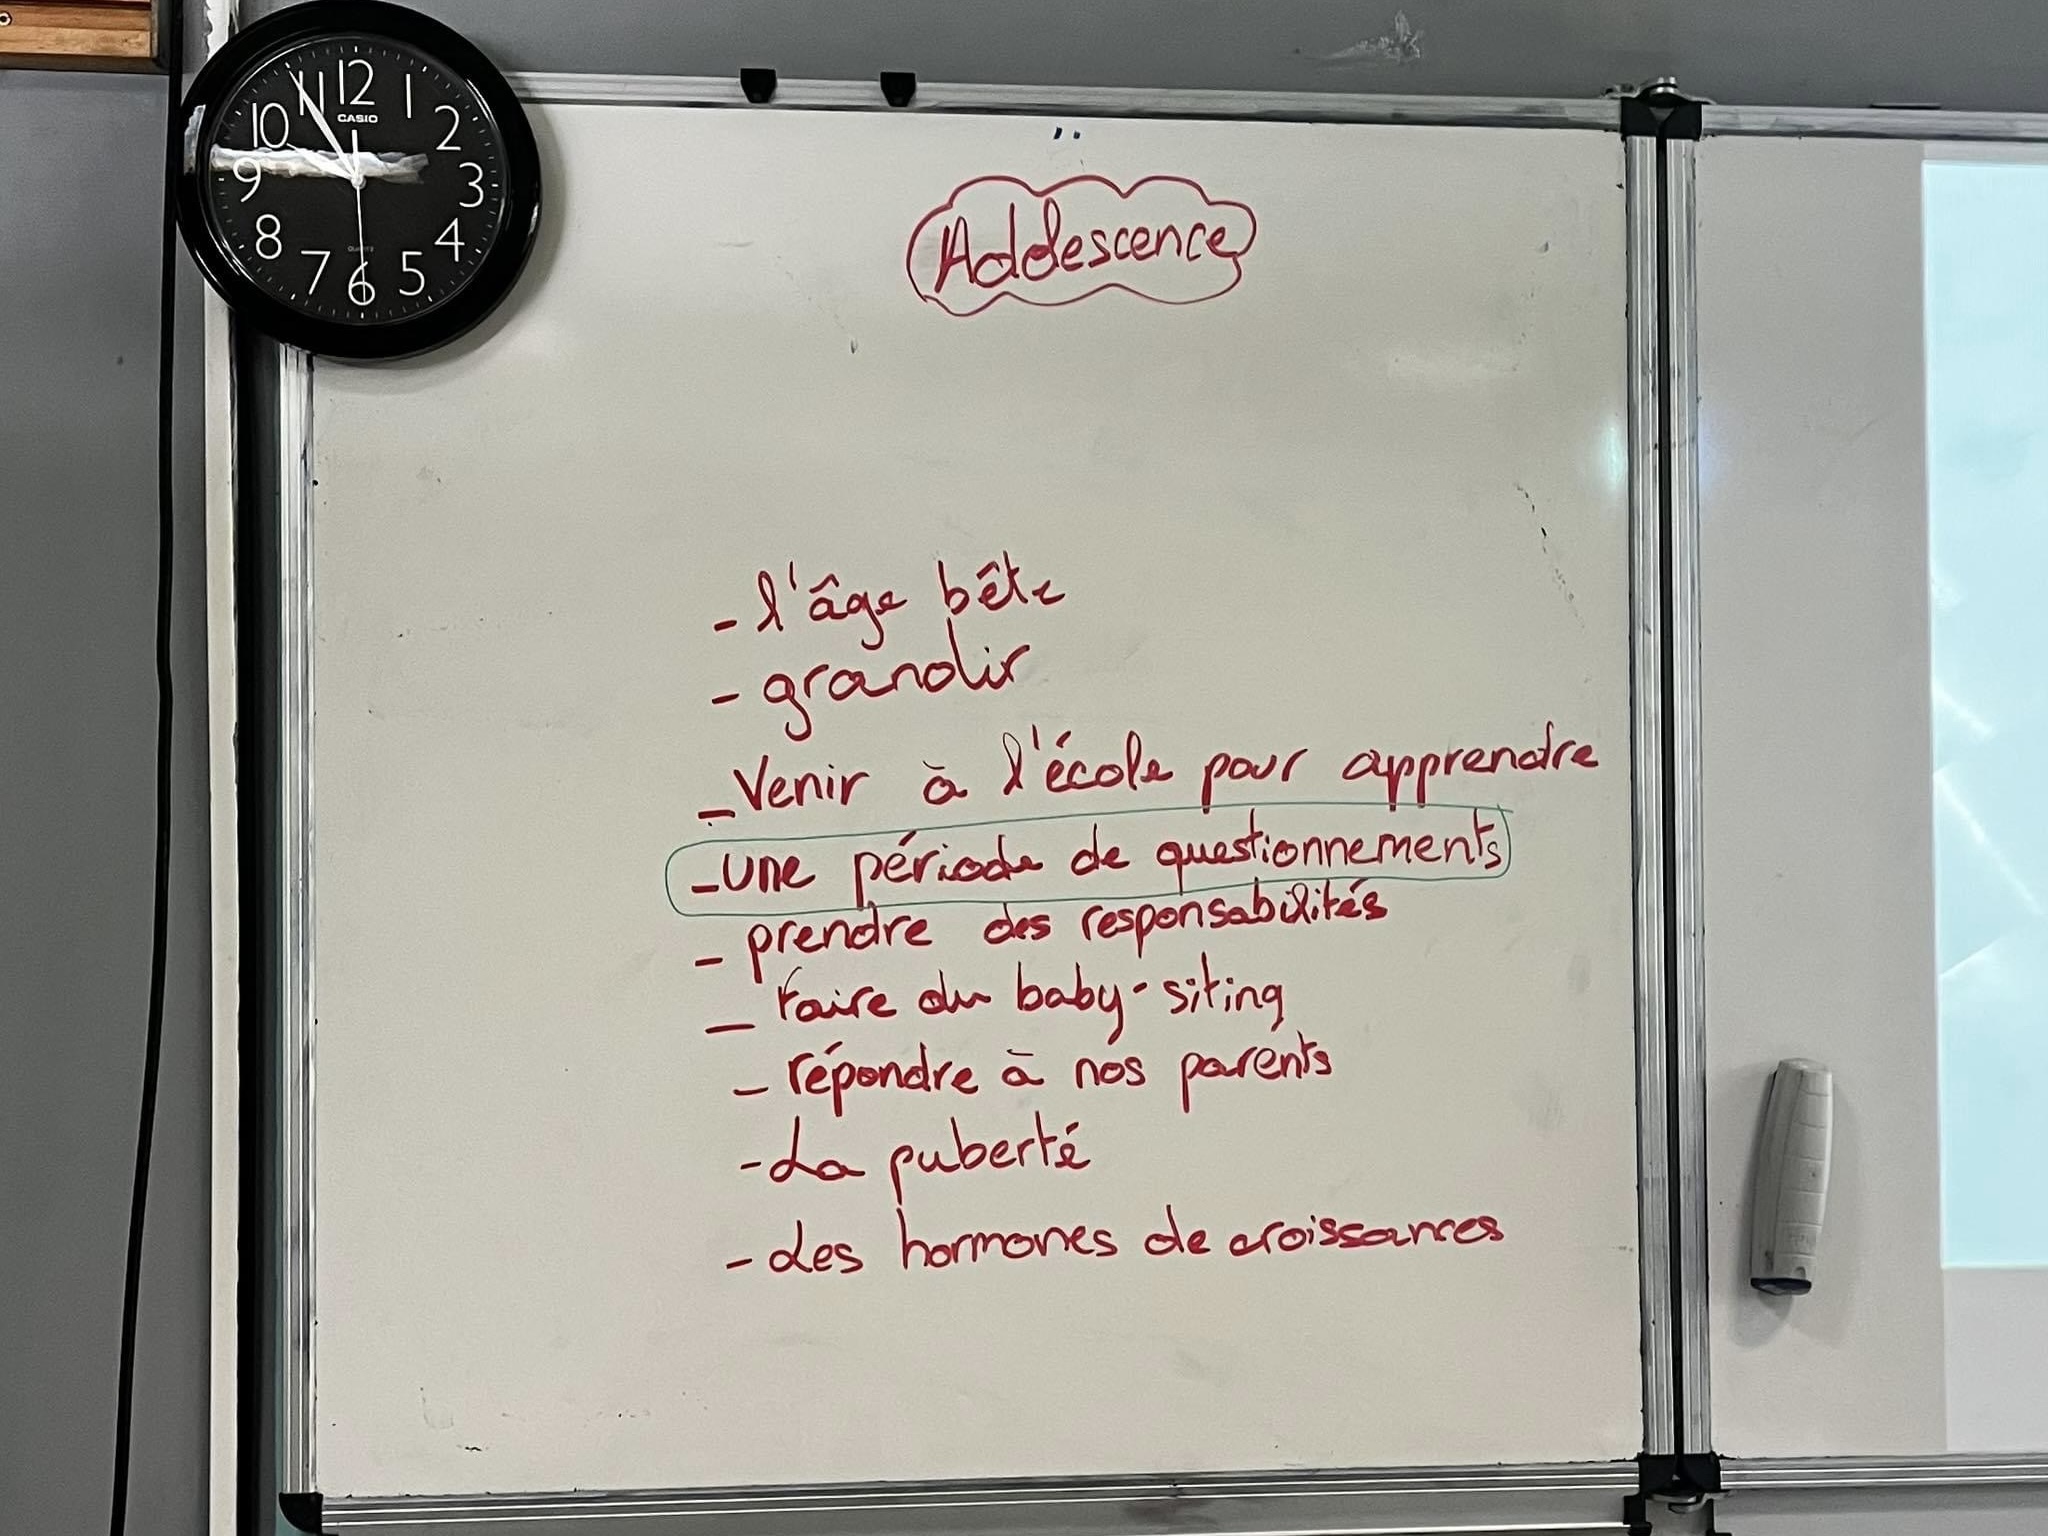 12
1
2
3
4
5
6
7
8
9
10
11
CASIO
QUARTZ
Adolescence
- l'âge bête
- grandir
- Venir à l'école pour apprendre
- une période de questionnements
- prendre des responsabilités
- faire du baby-siting
- répondre à nos parents
- La puberté
- Les hormones de croissances